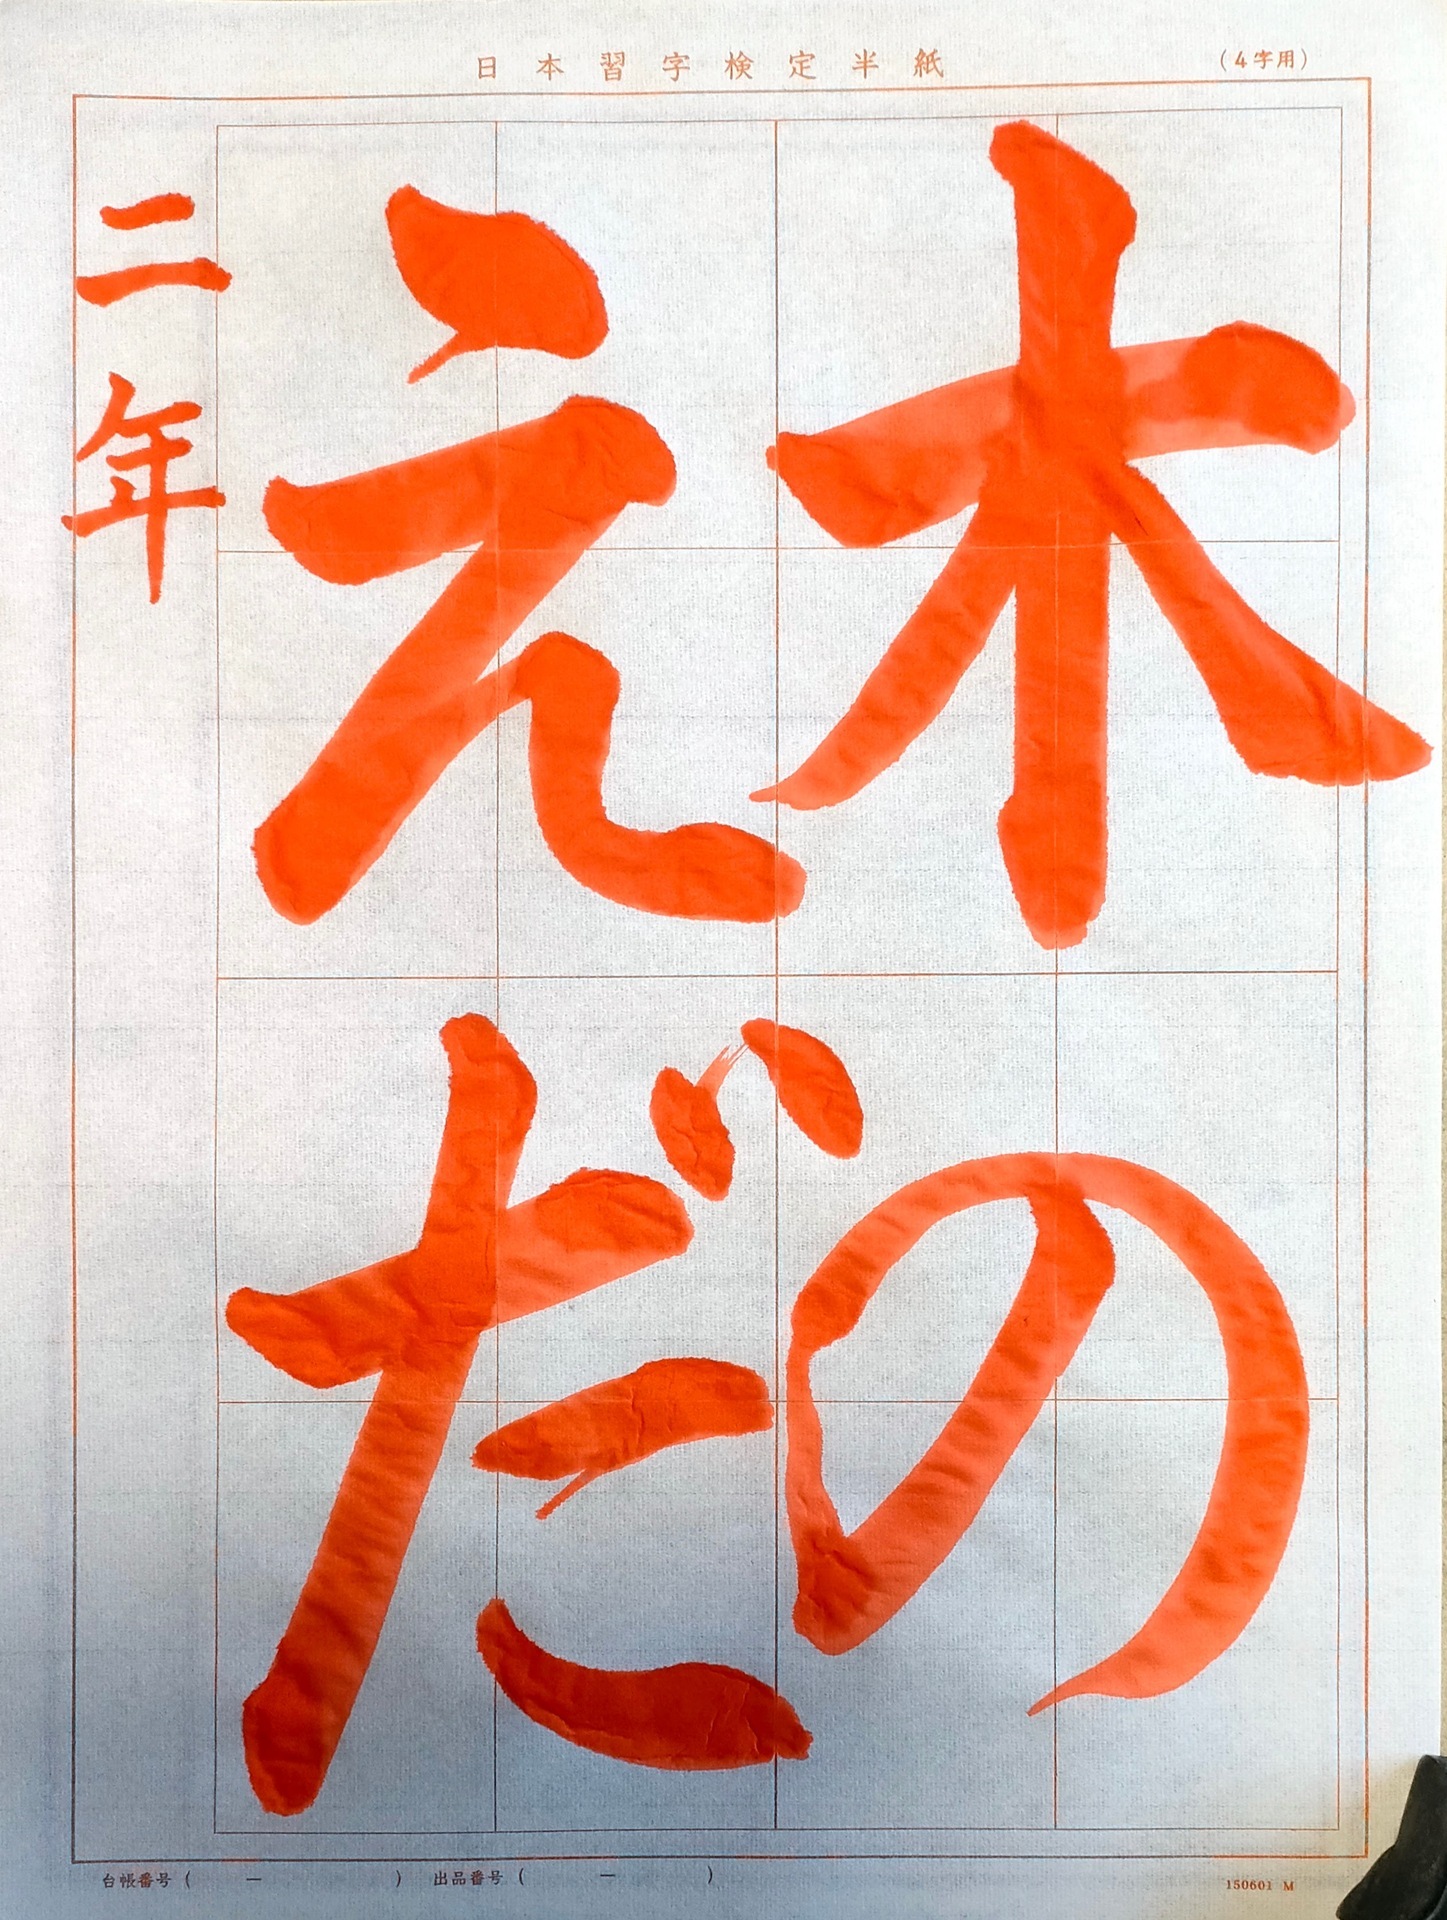 日本習字検定半紙
(4字用)
木の
えだ
二年
台帳番号 ( — ) 出品番号 ( — )
150601 M